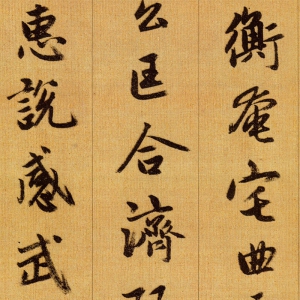 衡奄宅曲
公匡合濟弱
惠說感武